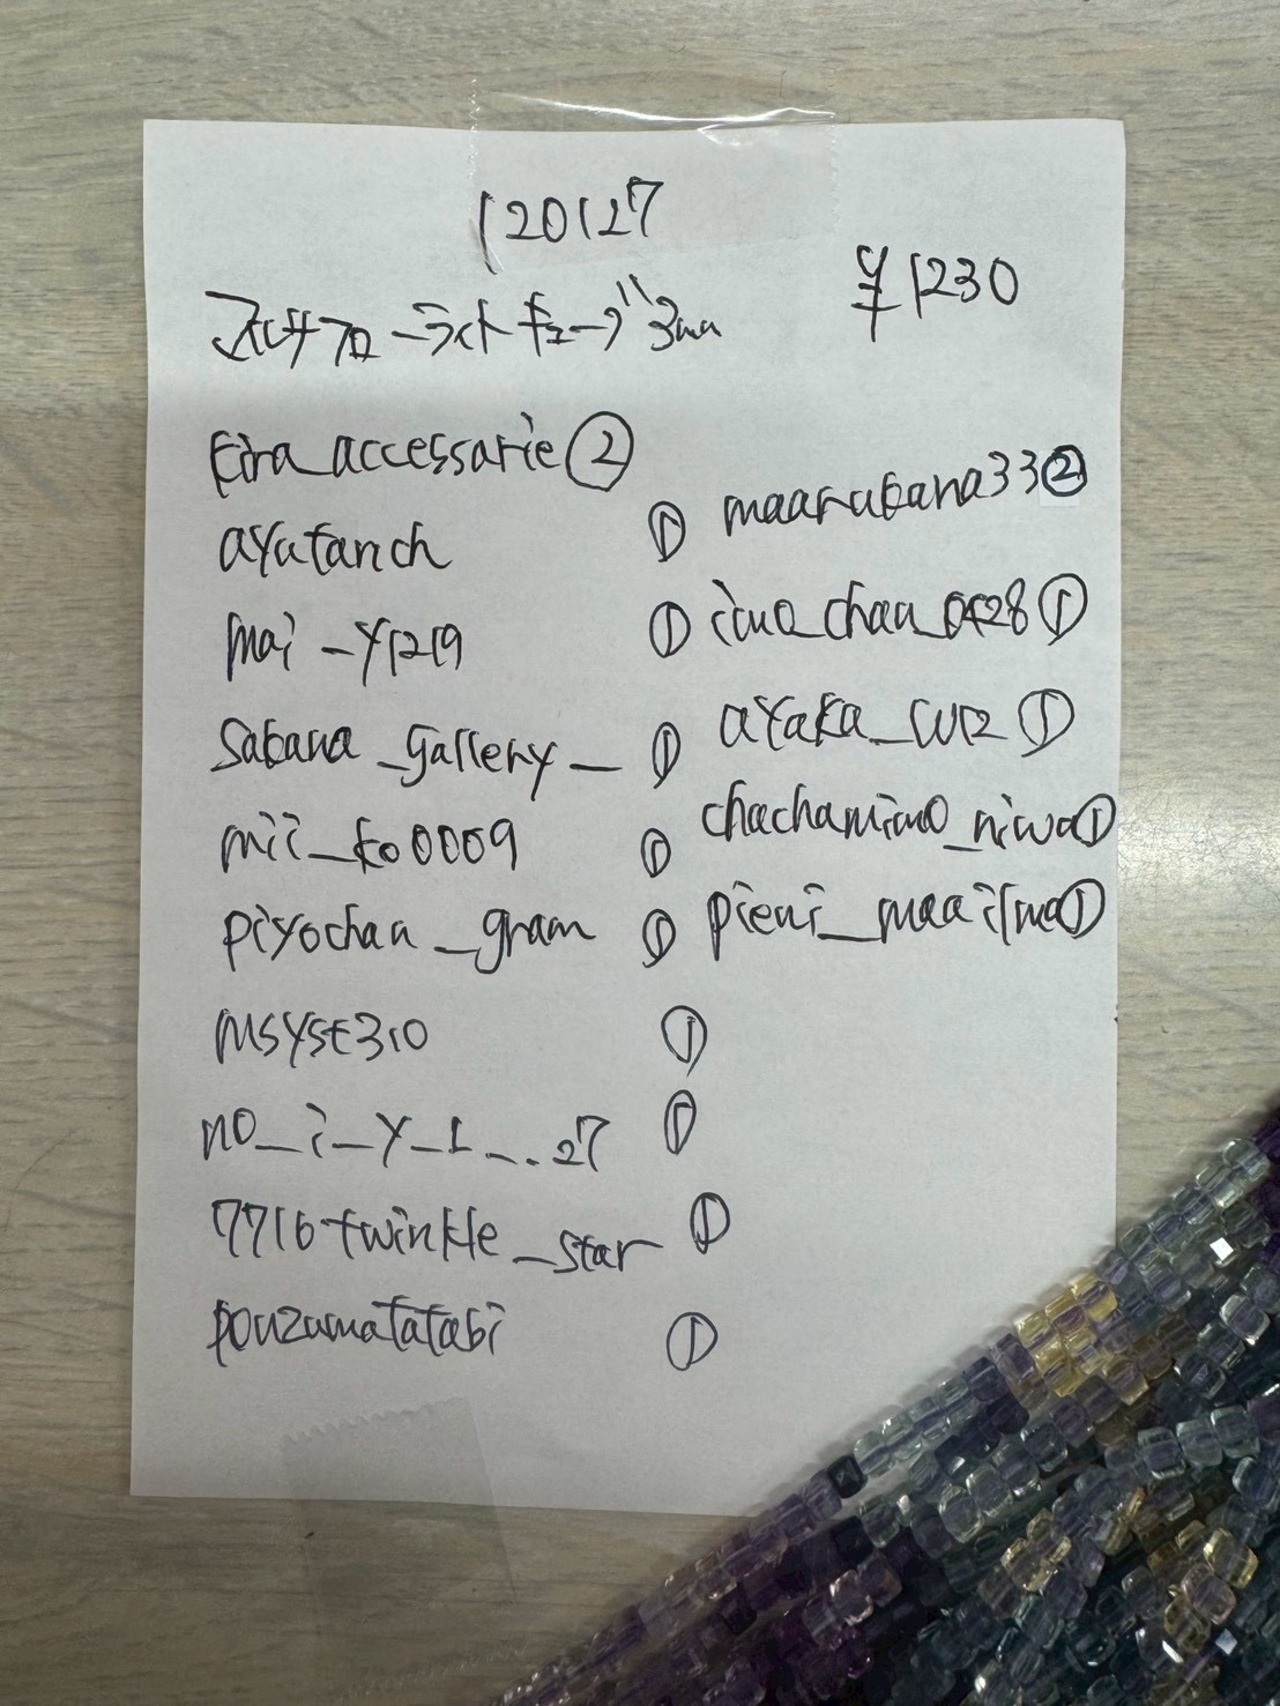 120127
¥1230
マルチフローライトキューブ3mm
kira_accessarie②
ayatanch ①
mai_y1219 ①
sakana_gallery_ ①
mii_ko0009 ①
piyochan_gram ①
msyst310 ①
no_i_y_1_..27 ①
7716twinkle_star ①
ponzumatatabi ①
maarukana33②
imo_chan_0428①
ayaka_cw12①
chachamimo_niwa①
pieni_maailma①